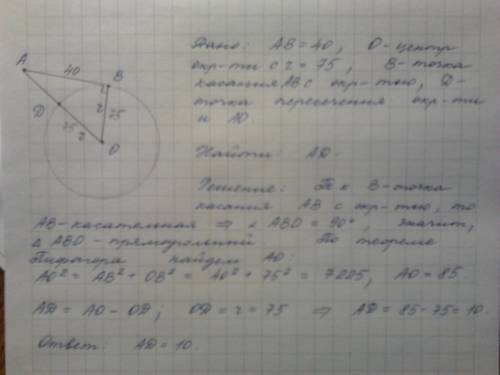 A
40
B
r
D
r
75
75
r
O
Дано: AB = 40, O-центр
окр-ти с r = 75, B-точка
касания AB с окр-тью, D-
точка пересечения окр-ти
и AO.
Найти: AD.
Решение: Т к B-точка
касания AB с окр-тью, то
AB-касательная ⇒ ∠ ABO = 90°, значит,
△ ABO - прямоугольный По теореме
Пифагора найдем AO:
AO² = AB² + OB² = 40² + 75² = 7225, AO = 85.
AD = AO - OD; OD = r = 75 ⇒ AD = 85 - 75 = 10.
Ответ: AD = 10.